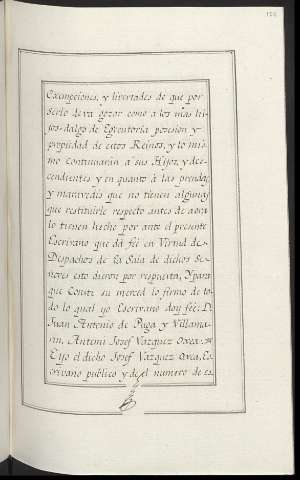 Exempciones, y livertades de que por
serlo deva gozar como a los mas hi-
jos-dalgo de Egecutoria posesion y
propiedad de estos Reinos, y lo mis-
mo continuarán á sus Hijos, y des-
cendientes y en quanto á las prendas,
y maravedis que no tienen algunas
que restituirle respecto antes de aora
lo tienen hecho por ante el presente
Escrivano que dá feé en Virtud de
Despachos de la Sala de dichos Se-
ñores esto dieron por respuesta, Ypara
que Conste su merced lo firmo de to-
do lo qual yo Escrivano doy feé: D.
Juan Antonio de Puga y Villama-
rin, Antemi Josef Vazquez Oxea.
E yo el dicho Josef Vazquez Oxea, Es-
crivano publico y de el numero de es